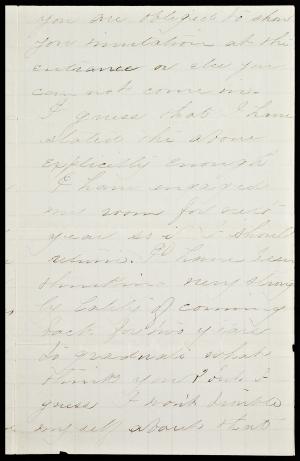 you are obliged to show
your invitation at the
entrance or else you
can not come in.
I guess that I have
stated the above
explicitly enough
I have engaged
my room for next
year as if I should
return. I have been
thinking very strong
ly lately of coming
back for two years
to graduate what
thinks you? but I
guess I wont trouble
myself about that